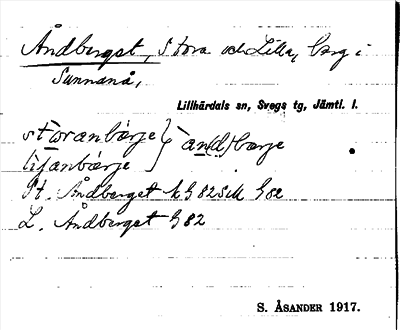 Åndberget, Stora och Lilla, berg i
Sunnanå,
Lillhärdals sn, Svegs tg, Jämtl. l.
storanbærje } -an(d)bærje
liljanbærje
St. Åndberget k G 82 SM G 82
L. Åndberget G 82
S. ÅSANDER 1917.